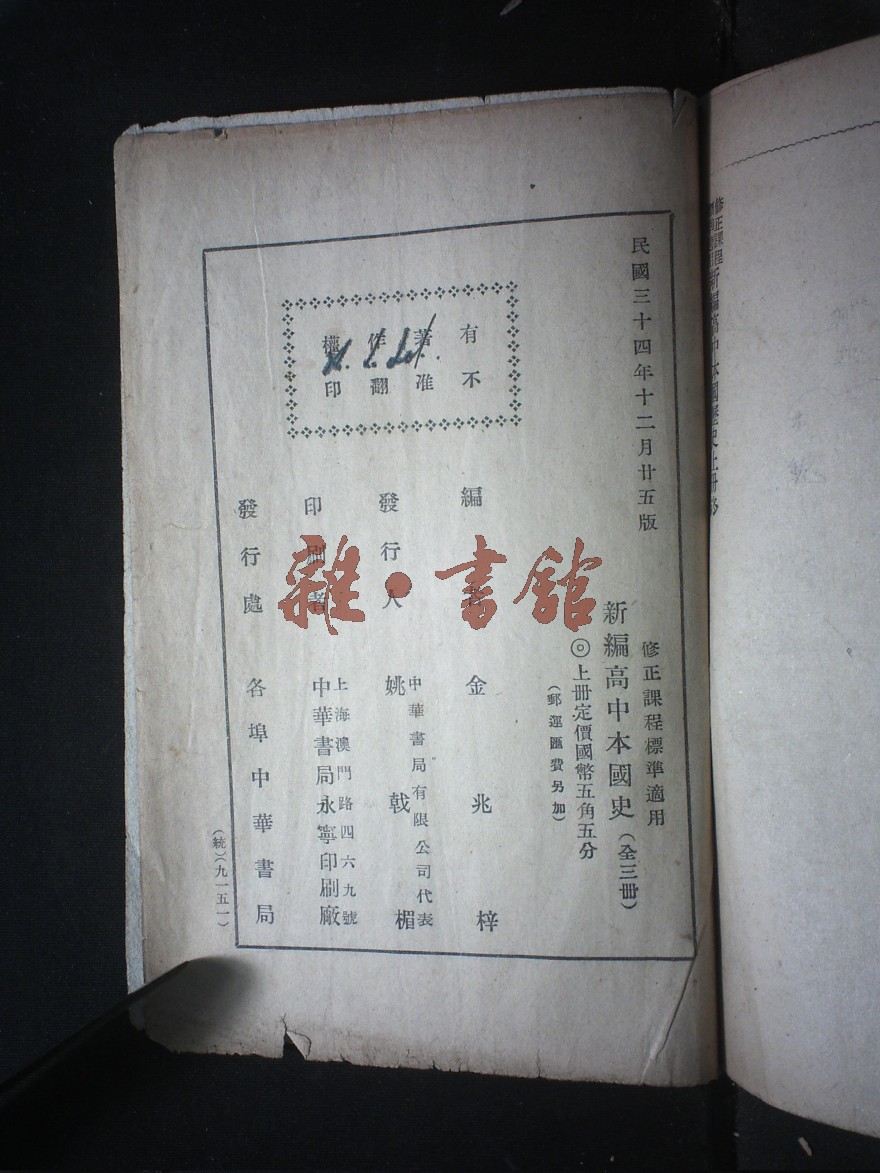 民國三十四年十二月廿五版
修正課程標準適用
新編高中本國史（全三冊）
◎上冊定價國幣五角五分
（郵運匯費另加）
有著作權
不准翻印
編 者 金兆梓
發行人 中華書局有限公司代表
姚戟楣
印刷者 上海澳門路四六九號
中華書局永寧印刷廠
發行處 各埠中華書局
（統）（九一五一）
雜·書館
修正課程
新編高中本國歷史上冊